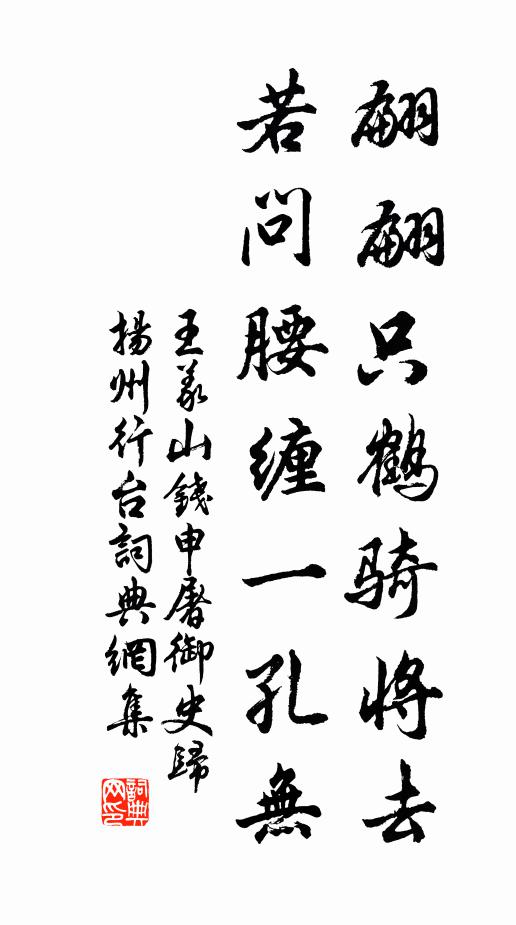 翩翩只鶴騎將去
若問腰纏一孔無
王義山錢申屠御史歸
揚州行台詞典網集
詞典网印